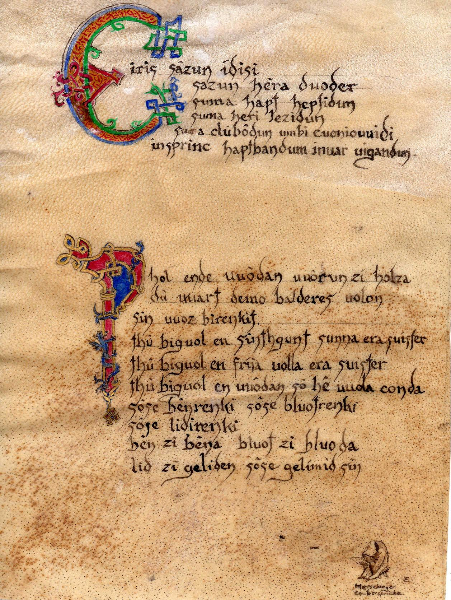 Eiris sazun idisi
sazun hera duoder
suma hapt heptidun
suma heri lezidun
suma clubodun umbi cuoniouuidi
insprinc haptbandum inuar uigandum.
Phol ende uuodan uuorun zi holza
dû uuart demo balderes uolon
sin uuoz birenkit
thû biguol en sinthgunt sunna era suister
thû biguol en frija uolla era suister
thû biguol en uuodan sô hê uuola conda
sôse bênrenki sôse bluotrenki
sôse lidirenki
bên zi bêna bluot zi bluoda
lid zi geliden sôse gelimid sin